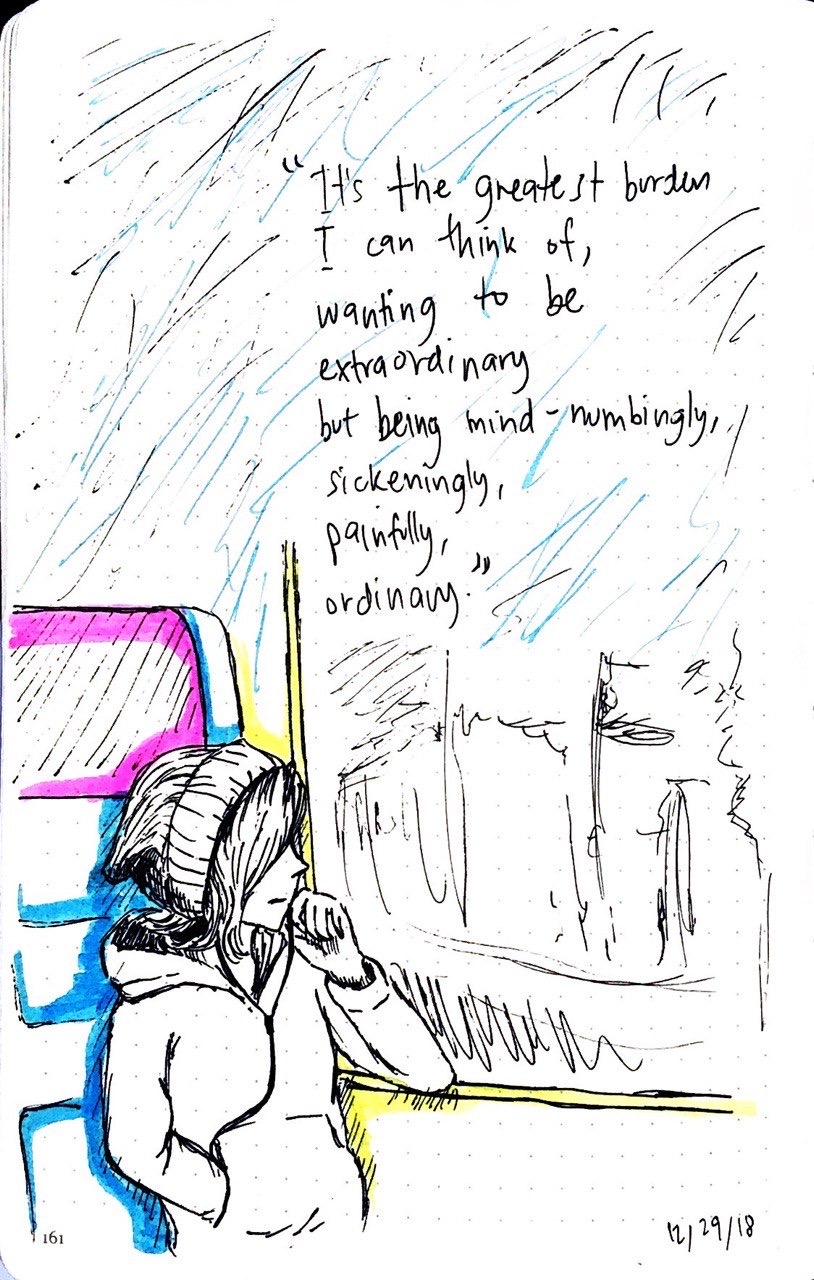 “It's the greatest burden
I can think of,
wanting to be
extraordinary
but being mind-numbingly,
sickeningly,
painfully,
ordinary.”
161
12/29/18